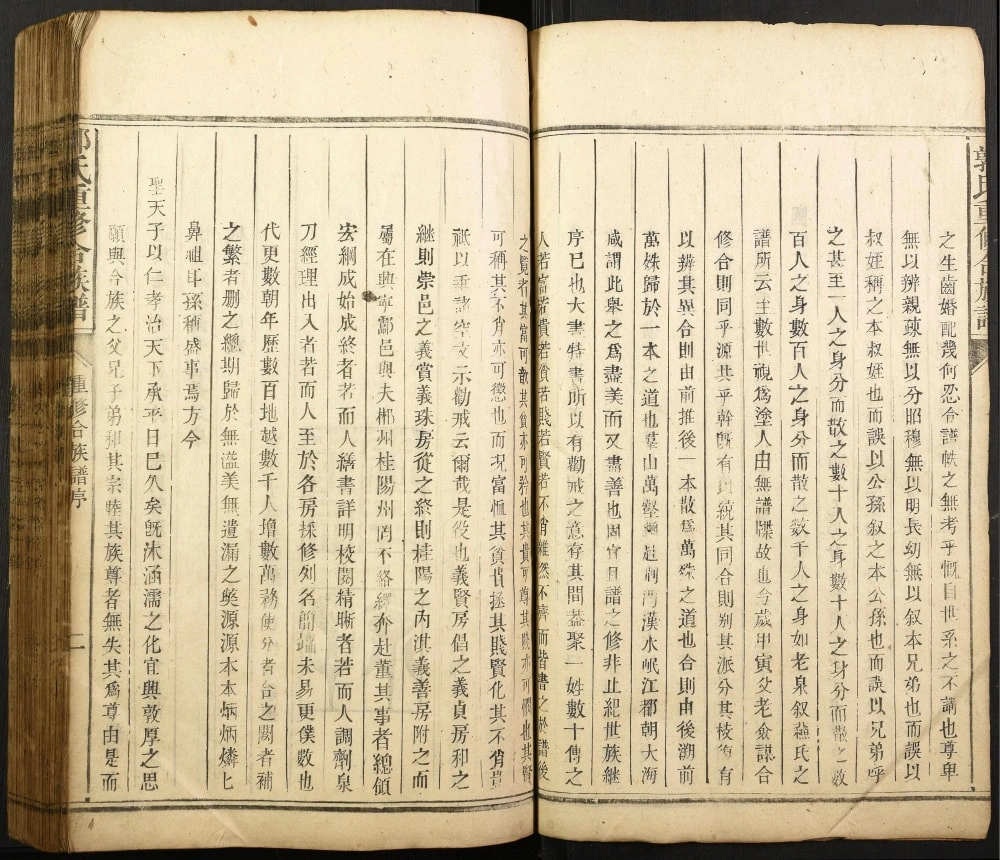 郭氏重修合族譜
之生齒婚配幾何忍令譜帙之無考乎慨自世系之不講也尊卑
無以辨親疎無以分昭穆無以明長幼無以叙本兄弟也而誤以
叔姪稱之本叔姪也而誤以公孫叙之本公孫也而誤以兄弟呼
之甚至一人之身分而散之數十人之身數十人之身分而散之數
百人之身數百人之身分而散之數千人之身如老泉叙蘇氏之
譜所云主數世視爲塗人由無譜牒故也今歲甲寅父老僉謀合
修合則同乎源共乎幹既有以統其同合則别其派分其枝復有
以辨其異合則由前推後一本散爲萬殊之道也合則由後溯前
萬殊歸於一本之道也羣山萬壑 荆門漢水岷江都朝大海
咸謂此舉之爲盡美而又盡善也固宜且譜之修非止紀世族継
序已也大書特書所以有勸戒之意存其間葢聚一姓數十傳之
人若富若貴若貧若賤若賢若不肖雖然不齊而皆書之於譜後
之覽者其富可 其貧亦可矜也其貴可尊其賤亦可憫也其賢
可稱其不肖亦可懲也而况富恤其貧貴拯其賤賢化其不肖豈
祇以垂諸空文示勸戒云爾哉是役也義賢房倡之義貞房和之
継則崇邑之義賞義珠房從之終則桂陽之内淇義善房附之而
屬在興寧酃邑與夫郴州桂陽州罔不絡繹奔赴董其事者總領
宏綱成始成終者若而人繕書詳明校閲精晰者若而人調劑泉
刀經理出入者若而人至於各房採修列名簡端未易更僕數也
代更數朝年歷數百地越數千人增數萬務使分者合之闕者補
之繁者删之總期歸於無溢美無遺漏之獘源源本本炳炳燐燐匕
鼻祖耳孫稱盛事焉方今
聖天子以仁孝治天下承平日已久矣既沐涵濡之化宜興敦厚之思
願與合族之父兄子弟和其宗睦其族尊者無失其爲尊由是而
郭氏重修合族譜
重修合族譜序
二